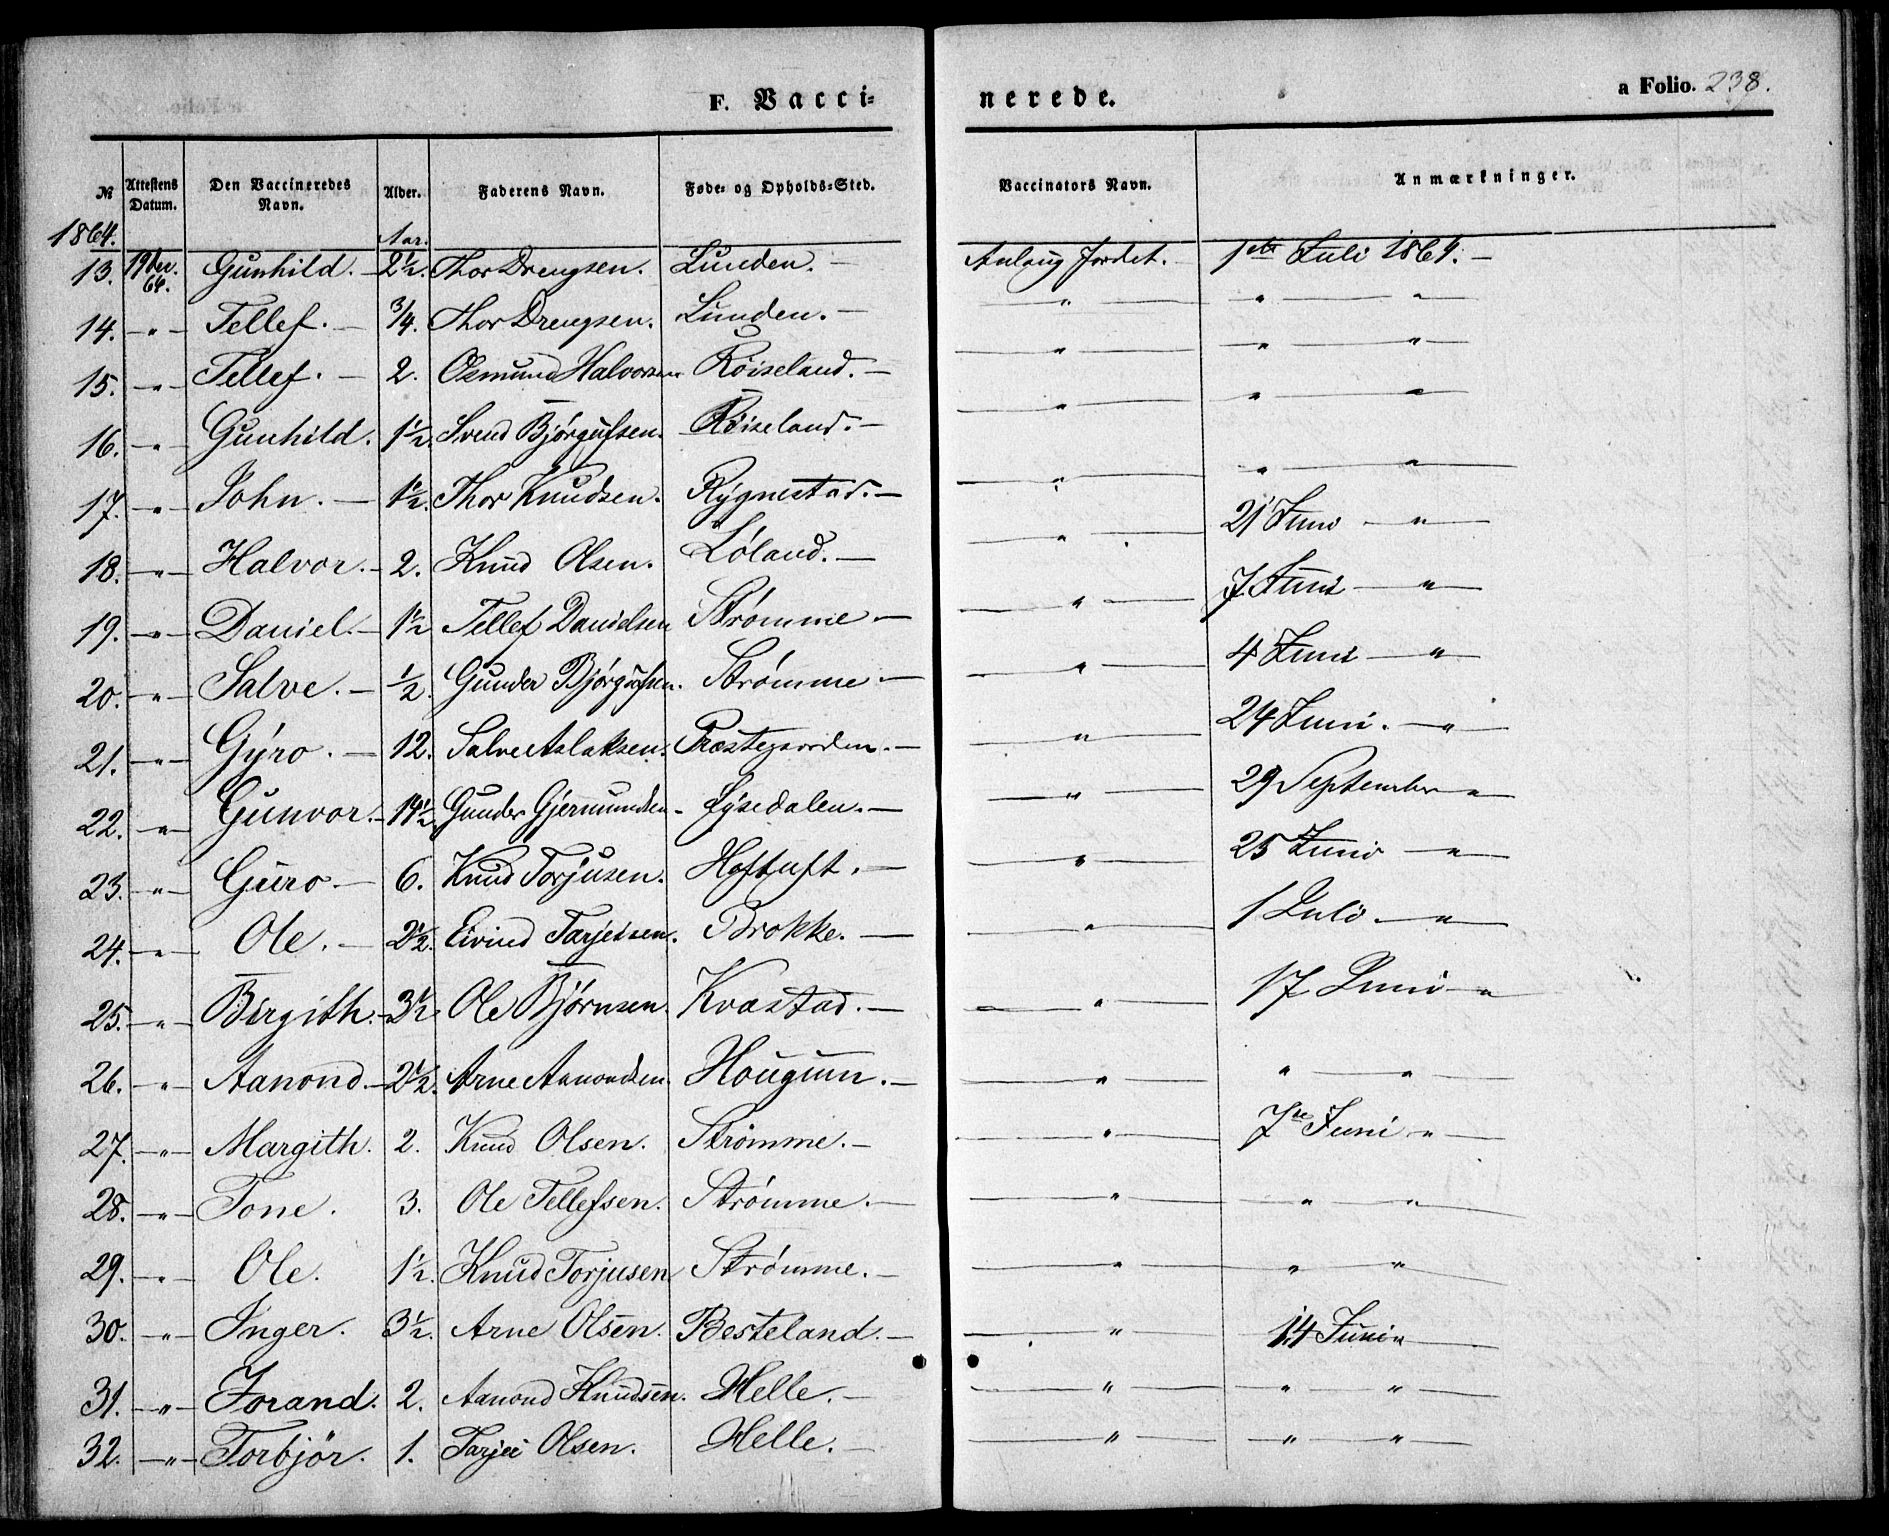 F. Vacci=
nerede.
a Folio. 238.
№ Attestens Datum. Den Vaccineredes Navn. Alder. Faderens Navn. Føde= og Opholds=Sted. Vaccinators Navn. Anmærkninger.
1864. Aar.
13. 19 Dec. 64. Gunhild. — 2½. Thor Drengsen. Lunden. — Aslaug Jordet. 1ste Juli 1864. —
14. — " — Tellef. — 3/4. Thor Drengsen. Lunden. — — " — " — " —
15. — " — Tellef. — 2. Osmund Halvorsen Røiseland. — — " — " — " —
16. — " — Gunhild. 1½. Svend Bjørgufsen. Røiseland. — — " — " — " —
17. — " — John. — 1½. Thor Knudsen. Rygnestad. — — " — " — " —
18. — " — Halvor. — 2. Knud Olsen. Løland. — — " — 21 Juni — " —
19. — " — Daniel. — 1½ Tellef Danielsen Strømme — — " — 7 Juni — " —
20. — " — Salve. — ½. Gunder Bjørgufsen. Strømme — — " — 4 Juni — " —
21. — " — Gyro. — 12. Salve Aslaksen. Præstegaarden. — — " — 24 Juni. — " —
22. — " — Gunvor. — 14½. Gunder Gjermundsen — Lysedalen. — — " — 29 September — " —
23. — " — Guro. — 6. Knud Torjusen. Hoftuft. — — " — 25 Juni — " —
24. — " — Ole. — 2½. Eivind Tarjeisen. Brokke. — — " — 1 Juli — " —
25. — " — Birgith. — 3½ Ole Bjørnsen. Kvastad. — — " — 17 Juni — " —
26. — " — Aanond. — 2½. Arne Aanondsen. Hougum. — — " — " — " —
27. — " — Margith. 2. Knud Olsen. Strømme. — — " — 7de Juni — " —
28. — " — Tone. 3. Ole Tellefsen. Strømme. — — " — " — " —
29. — " — Ole. 1½. Knud Torjusen Strømme. — — " — " — " —
30. — " — Inger. 3½. Arne Olsen. Besteland. — — " — 14 Juni " —
31. — " — Jorand. 2. Aanond Knudsen. Helle. — — " — " — " —
32. — " — Torbjør. 1. Tarjei Olsen. Helle. — — " — " — " —